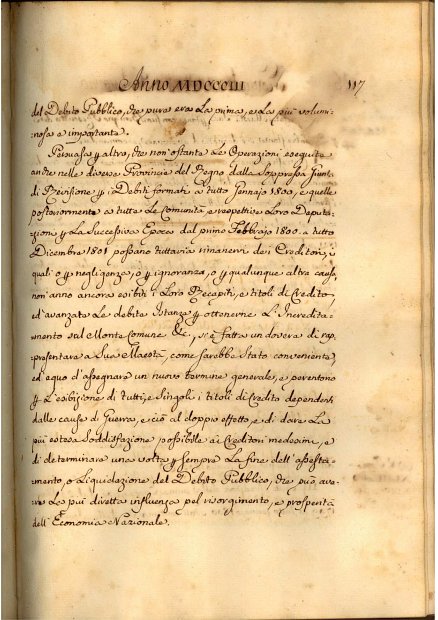 Anno MDCCCIII 117
del Debito Pubblico, che pura era la prima, e la più volumi:
nosa e importante.
Persuasa p altro, che non'ostante le Operazioni eseguite
anche nelle diverse Provincie del Regno dalla Soppressa Giunt.
di Revisione p i Debiti formati a tutto Gennajo 1800, e quelle
posteriormente a tutte le Comunità e respettive Loro Deputa-
zioni p La Successiva Epoca dal primo Febbrajo 1800. a tutto
Dicembre 1801 possano tuttavia rimanervi dei Creditori, i
quali o p negligenza, o p ignoranza, o p qualunque altra causa,
non'anno ancora esibiti i Loro Recapiti, e titoli di Credito
ed'avanzate Le debite Istanze p ottenerne L'Incredita-
mento sul Monte Comune &c., si è fatta un dovere di rap-
presentare a Sua Maestà, come sarebbe stato conveniente,
ed'equo d'assegnare un nuovo termine generale, e perentorio
p L'esibizione di tutti, e Singoli i titoli di Credito dependenti
dalle cause di Guerra, e ciò al doppio effetto, e di dare La
più estesa Soddisfazione possibile ai Creditori medesimi, e
di determinare una volta p sempre La fine dell'assesta-
mento, o Liquidazione del Debito Pubblico, che può, ave-
re Le più diretta influenza pel risorgimento, e prosperità
dell'Economia Nazionale.